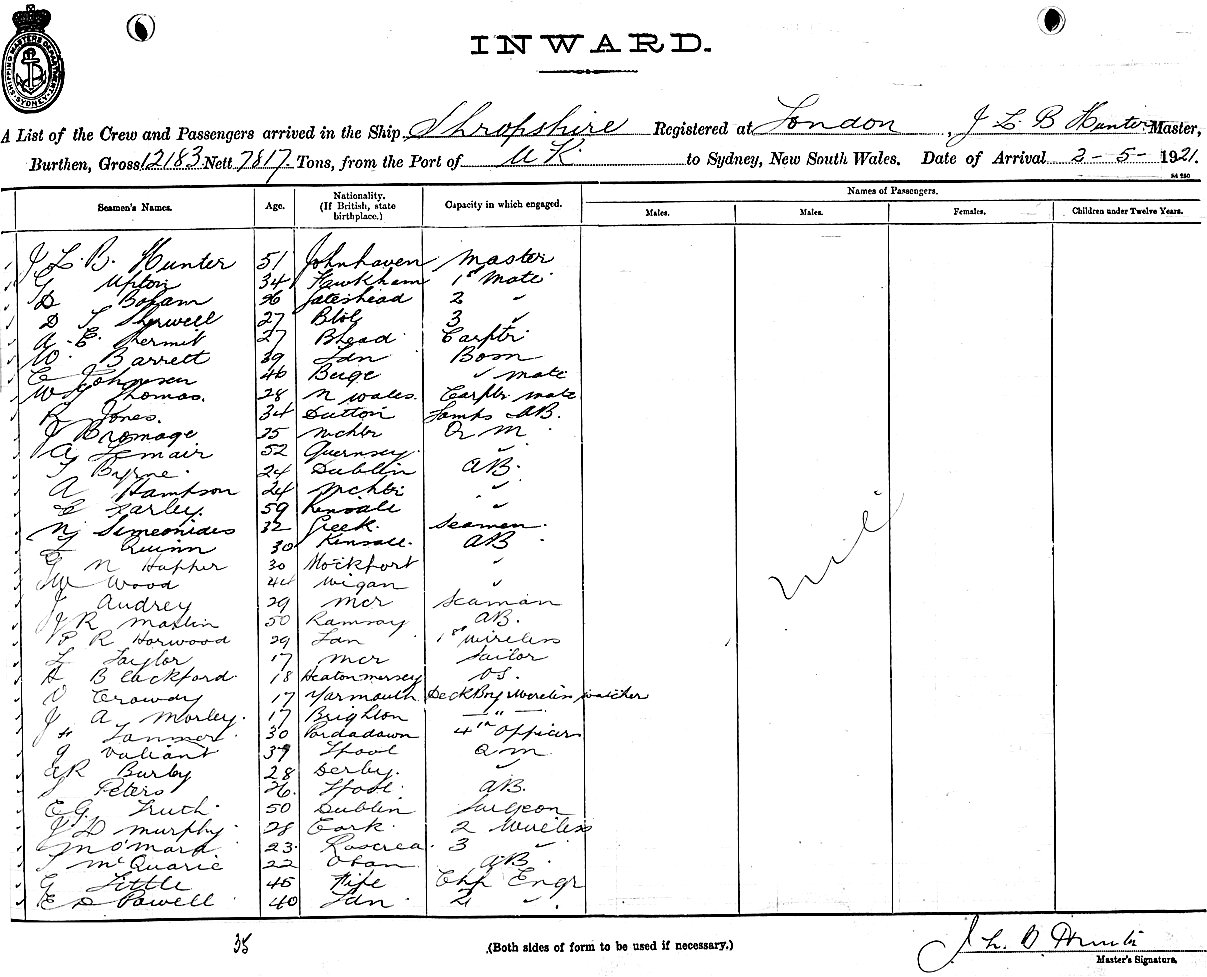 SHIPPING MASTERS DEPARTMENT SYDNEY
INWARD.
A List of the Crew and Passengers arrived in the Ship Shropshire Registered at London, J L B Hunter Master,
Burthen, Gross 12183 Nett 7817 Tons, from the Port of U K to Sydney, New South Wales. Date of Arrival 2-5-1921.
Names of Passengers.
Seamen's Names. Age. Nationality. (If British, state birthplace.) Capacity in which engaged. Males. Males. Females. Children under Twelve Years.
J L. B. Hunter 51 Johnhaven Master
G Upton 34 Fawkham 1st Mate
D Boham 26 Gateshead 2 "
D T Sherwell 27 3 "
A. E. Kermit 27 Bhead Carptr
W. Barrett 39 Ldn Bosn
C Johnson 46 " mate
W Thomas. 28 N Wales. Carptr mate
R Jones. 34 Sutton Lamps AB.
J Bromage 25 Mchtr Q M
A Lemair 52 Guernsey. "
T Byrne. 24 Dublin AB.
A Hampson 24 Mchtr "
C Farley. 59 Kinsale "
N Simeonides 32 Greek. Seaman.
T Quinn 30 Kinsale. AB
G N Hopper 30 "
J W Wood 44 Wigan "
J Audrey 29 Mcr Seaman
J R Maslin 50 Ramsay AB.
P R Horwood 29 Lan 1st Wireless
L Taylor 17 Mcr Sailor
H Blackford. 18 Heaton mersey OS.
O Crowdy 17 Yarmouth Deck Boy Wireless watcher
J A Morley. 17 Brighton — " —
H Lanmer 30 Pordadown 4th Officer
J Valiant 39 Lpool Q M
G R Burby 28 Derby. "
J Peters 26. Lpool. AB.
E G. Truth 50 Dublin Surgeon
J D Murphy 28 Cork. 2 Wireless
M O'Mara 23. Roscrea. 3 "
J McQuarie 22 Oban AB.
G Little 45 Fife Chf Engr
E D Powell 40 Ldn. 2 "
nil
35
(Both sides of form to be used if necessary.)
J L. B Hunter
Master's Signature.